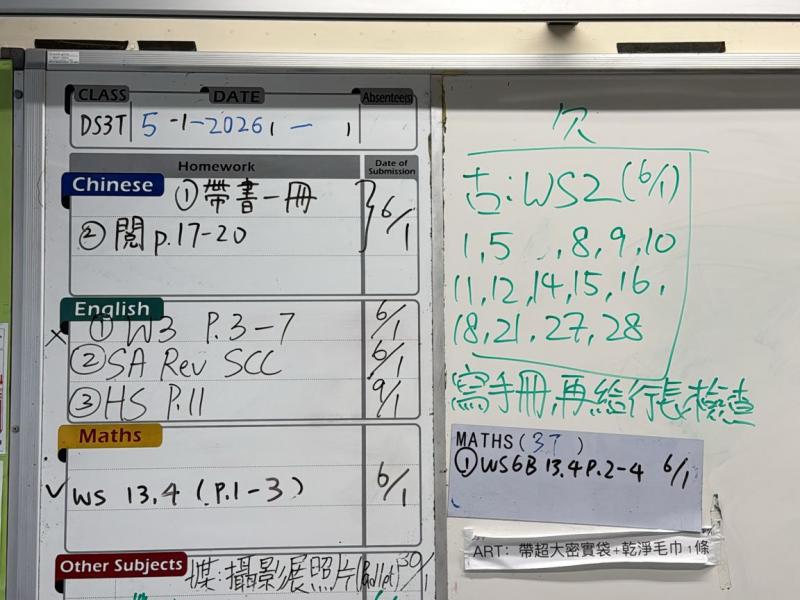 CLASS DATE Absentees
DS3T 5-1-2026
Homework Date of Submission
Chinese
①帶書一冊
②閱 p.17-20 6/1
English
① W3 P.3-7 6/1
② SA Rev SCC 6/1
③ HS P.11 9/1
Maths
WS 13.4 (P.1-3) 6/1
Other Subjects
攝影展照片(Padlet) 30/1
欠
古:WS2 (6/1)
1,5 ,8,9,10
11,12,14,15,16,
18,21,27,28
寫手冊,再給行長檢查
MATHS(3T)
① WS6B 13.4 P.2-4 6/1
ART: 帶超大密實袋+乾淨毛巾1條